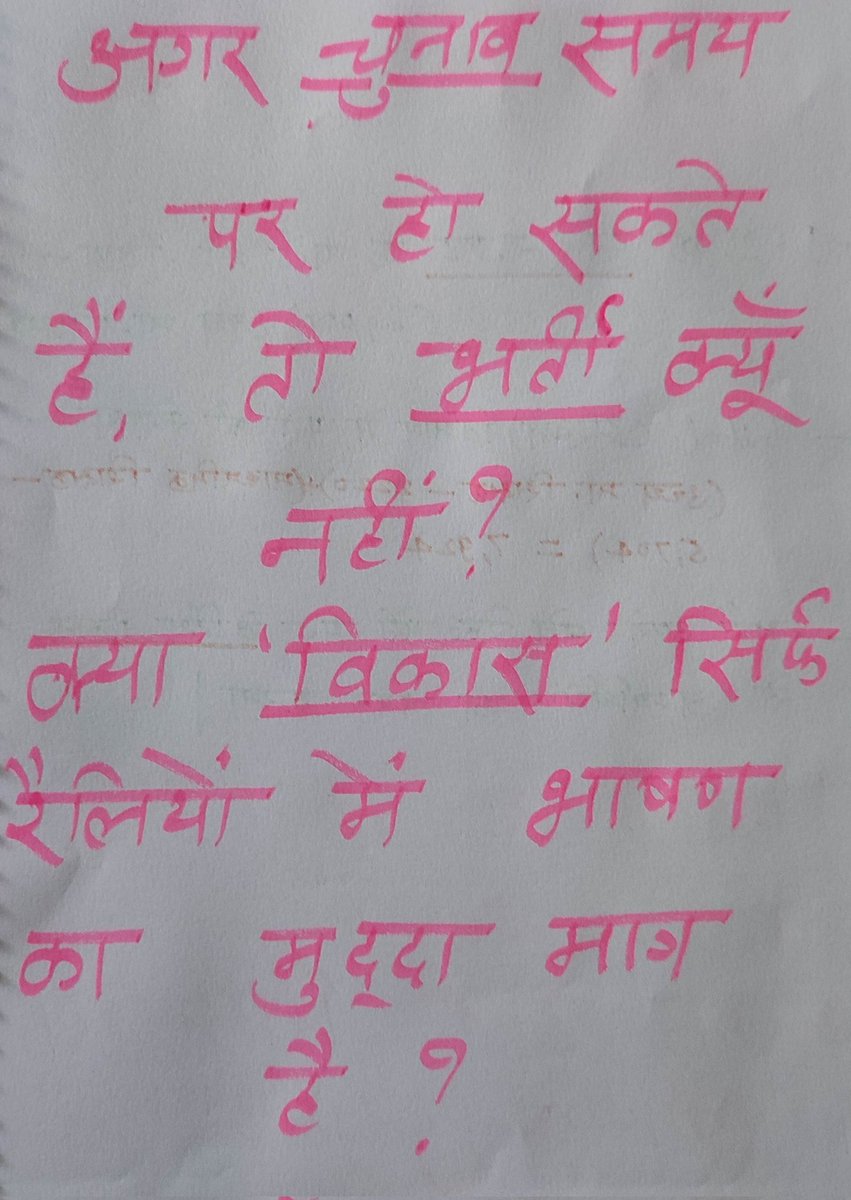 अगर चुनाव समय
पर हो सकते
हैं, तो भर्ती क्यूँ
नहीं?
क्या 'विकास' सिर्फ
रैलियों में भाषण
का मुद्दा मात्र
है?